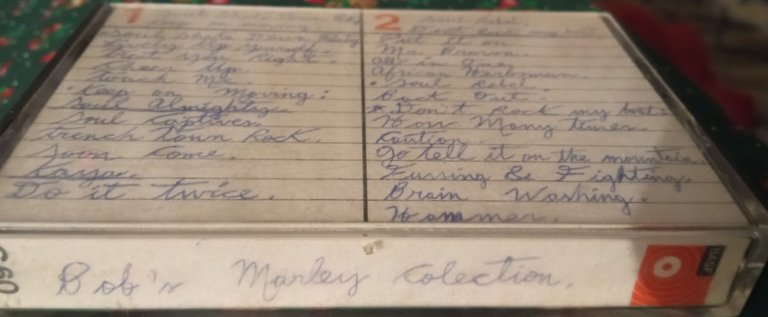 1
Soul Shake Down Party
Lively Up Yourself.
Treat You Right.
Cheer Up.
Touch Me.
• Keep on Moving:
Soul Almighty.
Soul Captives.
Trench Town Rock.
Soon Come.
Kaya.
Do it twice.
2 Soul Rebel.
Dont Rock my boat
Put it on.
Mr Brown.
All in One
African Herbsman.
• Soul Rebel.
Back Out.
* Don't Rock my boat:
How Many times.
Caution.
Go tell it on the mountain
Fussing & Fighting.
Brain Washing.
Hammer.
C60
Bob's Marley Colection.
BASF